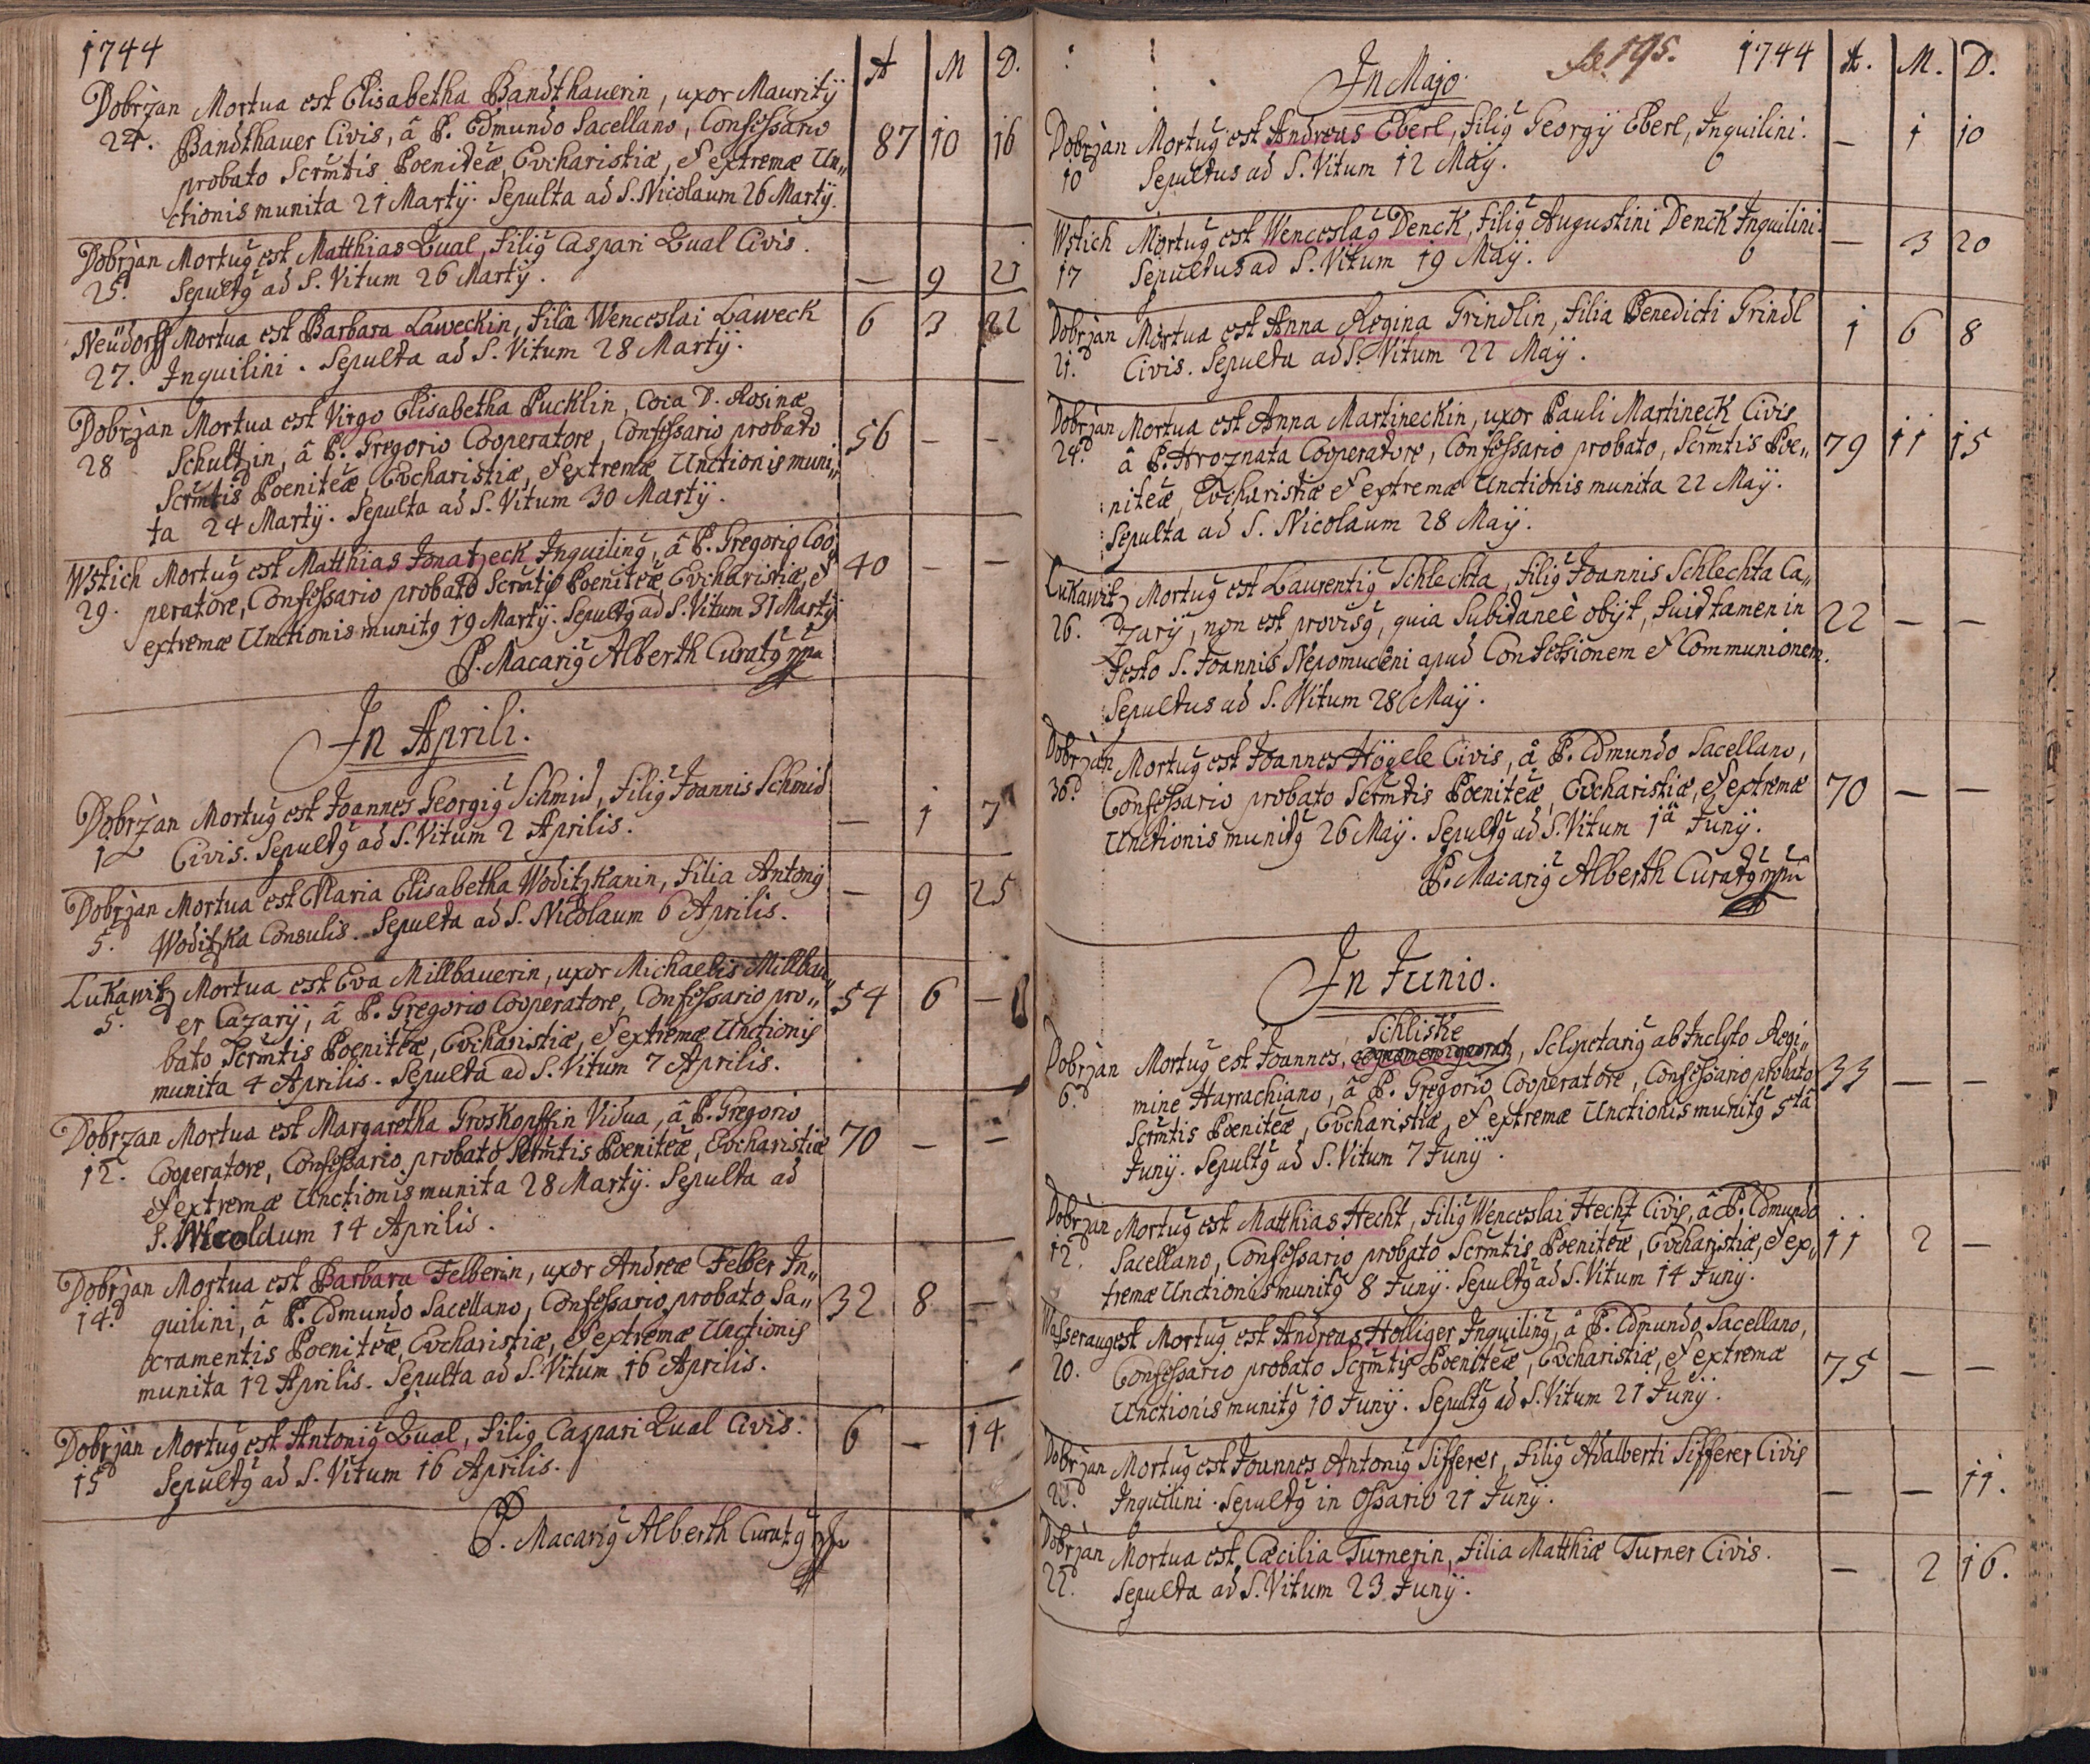 1744 A M D.
Dobrzan Mortua est Elisabetha Bandthauerin, uxor Mauritÿ
24. Bandthauer Civis, â P. Edmundo Sacellano, Confessario 87 10 16
probato Scrmtis Poeniteæ, Evcharistiæ, et extremæ Un„
ctionis munita 21 Martÿ. Sepulta ad S. Nicolaum 26 Martÿ.
Dobrzan Mortuꝰ est Matthias Lual, Filiꝰ Caspari Lual Civis.
25. Sepultꝰ ad S. Vitum 26 Martÿ. — 9 21
Neüdorff Mortua est Barbara Laweckin, Filia Wenceslai Laweck 6 3 22
27. Inquilini. Sepulta ad S. Vitum 28 Martÿ.
Dobrzan Mortua est Virgo Elisabetha Pucklin, Coca D. Rosinæ
28 Schultzin, â P. Gregorio Cooperatore, Confessario probato 56 — —
Scrmtis Poeniteæ, Evcharistiæ, et extremæ Unctionis muni„
ta 24 Martÿ. Sepulta ad S. Vitum 30 Martÿ.
Wstich Mortuꝰ est Matthias Jonatzeck Inquilinꝰ, â P. Gregorio Coo„ 40 — —
29. peratore, Confessario probato Scrmtis Poeniteæ, Evcharistiæ, et
extremæ Unctionis munitꝰ 19 Martÿ. Sepultꝰ ad S. Vitum 31 Martÿ.
P. Macariꝰ Alberth Curatꝰ mpa
In Aprili.
Dobrzan Mortuꝰ est Joannes Georgiꝰ Schmid, Filiꝰ Joannis Schmid
1 Civis. Sepultꝰ ad S. Vitum 2 Aprilis. — 1 7
Dobrzan Mortua est Maria Elisabetha Woditzkanin, Filia Antonÿ
5. Woditzka Consulis. Sepulta ad S. Nicolaum 6 Aprilis. — 9 25
Lukawitz Mortua est Eva Millbauerin, uxor Michaelis Millbau„
5. er Cazarÿ, â P. Gregorio Cooperatore, Confessario pro„ 54 6 —
bato Scrmtis Poeniteæ, Evcharistiæ, et extremæ Unctionis
munita 4 Aprilis. Sepulta ad S. Vitum 7 Aprilis.
Dobrzan Mortua est Margaretha Groskopffin Vidua, â P. Gregorio
12. Cooperatore, Confessario probato Scrmtis Poeniteæ, Evcharistiæ 70 — —
et extremæ Unctionis munita 28 Martÿ. Sepulta ad
S. Nicolaum 14 Aprilis.
Dobrzan Mortua est Barbara Felberin, uxor Andreæ Felber In„
14. quilini, â P. Edmundo Sacellano, Confessario probato Sa„ 32 8 —
cramentis Poeniteæ, Evcharistiæ, et extremæ Unctionis
munita 12 Aprilis. Sepulta ad S. Vitum 16 Aprilis.
Dobrzan Mortuꝰ est Antoniꝰ Lual, Filiꝰ Caspari Lual Civis. 6 — 14.
15 Sepultꝰ ad S. Vitum 16 Aprilis.
P. Macariꝰ Alberth Curatꝰ mpa
In Majo. fol. 195. 1744 A. M. D.
Dobrzan Mortuꝰ est Andreas Eberl, Filiꝰ Georgÿ Eberl, Inquilini. — 1 10
10 Sepultus ad S. Vitum 12 Maÿ.
Wstich Mortuꝰ est Wenceslaꝰ Denck, Filiꝰ Augustini Denck Inquilini. — 3 20
17 Sepultus ad S. Vitum 19 Maÿ.
Dobrzan Mortua est Anna Regina Grindlin, Filia Benedicti Grindl 1 6 8
21. Civis. Sepulta ad S. Vitum 22 Maÿ.
Dobrzan Mortua est Anna Martineckin, uxor Pauli Martineck Civis
24. â P. Hroznata Cooperatore, Confessario probato, Scrmtis Poe„ 79 11 15
niteæ, Evcharistiæ et extremæ Unctionis munita 22 Maÿ.
Sepulta ad S. Nicolaum 28 Maÿ.
Lukawitz Mortuꝰ est Laurentiꝰ Schlechta, Filiꝰ Joannis Schlechta Ca„
26. zarÿ, non est provisꝰ, quia Subitaneè obijt, Fuit tamen in 22 — —
Festo S. Joannis Nepomuceni apud Confessionem et Communionem.
Sepultus ad S. Vitum 28 Maÿ.
Dobrzan Mortuꝰ est Joannes Högele Civis, â P. Edmundo Sacellano,
30. Confessario probato Scrmtis Poeniteæ, Evcharistiæ, et extremæ 70 — —
Unctionis munitꝰ 26 Maÿ. Sepultꝰ ad S. Vitum 1ma Junÿ.
P. Macariꝰ Alberth Curatꝰ mpa
In Junio.
Schliske
Dobrzan Mortuꝰ est Joannes, Sclopetariꝰ ab Inclyto Regi„
6. mine Harrachiano, â P. Gregorio Cooperatore, Confessario probato 33 — —
Scrmtis Poeniteæ, Evcharistiæ, et extremæ Unctionis munitꝰ 5ta
Junÿ. Sepultꝰ ad S. Vitum 7 Junÿ.
Dobrzan Mortuꝰ est Matthias Hecht, Filiꝰ Wenceslai Hecht Civis, â P. Edmundo
12. Sacellano, Confessario probato Scrmtis Poeniteæ, Evcharistiæ, et ex„ 11 2 —
tremæ Unctionis munitꝰ 8 Junÿ. Sepultꝰ ad S. Vitum 14 Junÿ.
Wasseraugest Mortuꝰ est Andreas Holliger Inquilinꝰ, â P. Edmundo Sacellano,
20. Confessario probato Scrmtis Poeniteæ, Evcharistiæ, et extremæ 75 — —
Unctionis munitꝰ 10 Junÿ. Sepultꝰ ad S. Vitum 21 Junÿ.
Dobrzan Mortuꝰ est Joannes Antoniꝰ Sifferer, Filiꝰ Adalberti Sifferer Civis
Inquilini. Sepultꝰ in Ossario 21 Junÿ. — — 11.
Dobrzan Mortua est Cæcilia Turnerin, Filia Matthiæ Turner Civis.
22. Sepulta ad S. Vitum 23 Junÿ. — 2 16.